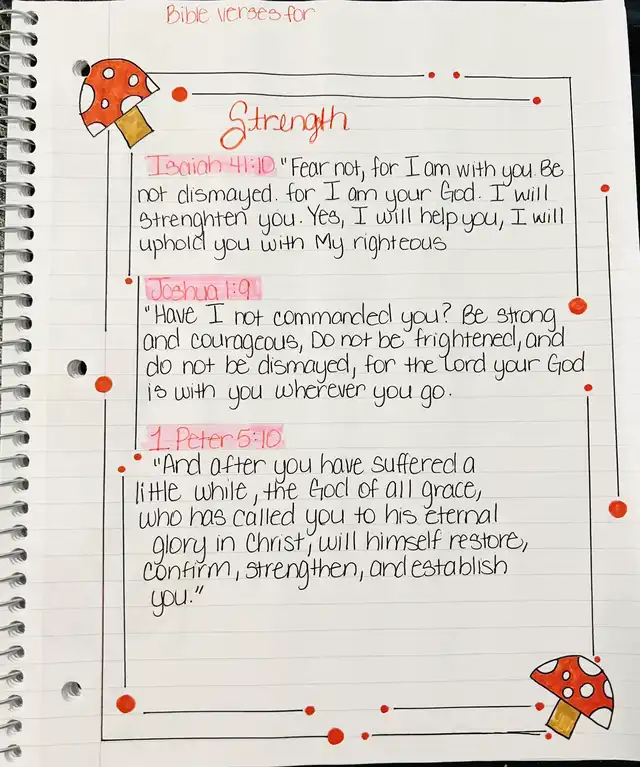 Bible verses for
Strength
Isaiah 41:10 "Fear not, for I am with you. Be
not dismayed. for I am your God. I will
strenghten you. Yes, I will help you, I will
uphold you with My righteous
Joshua 1:9
"Have I not commanded you? Be strong
and courageous, Do not be frightened, and
do not be dismayed, for the Lord your God
is with you wherever you go.
1 Peter 5:10
"And after you have suffered a
little while, the God of all grace,
who has called you to his eternal
glory in Christ, will himself restore,
confirm, strengthen, and establish
you."